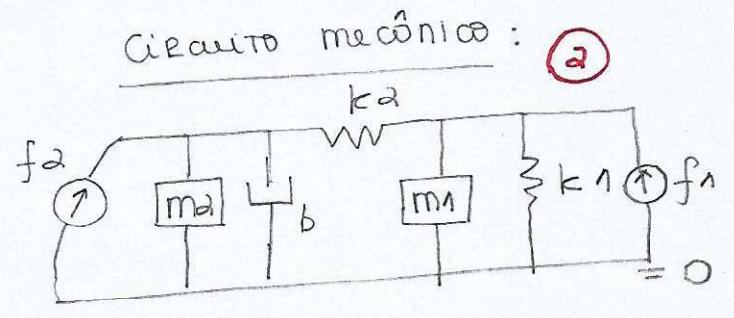 Circuito mecônico : 2
k2
f2
m2
b
m1
k1
f1
= 0